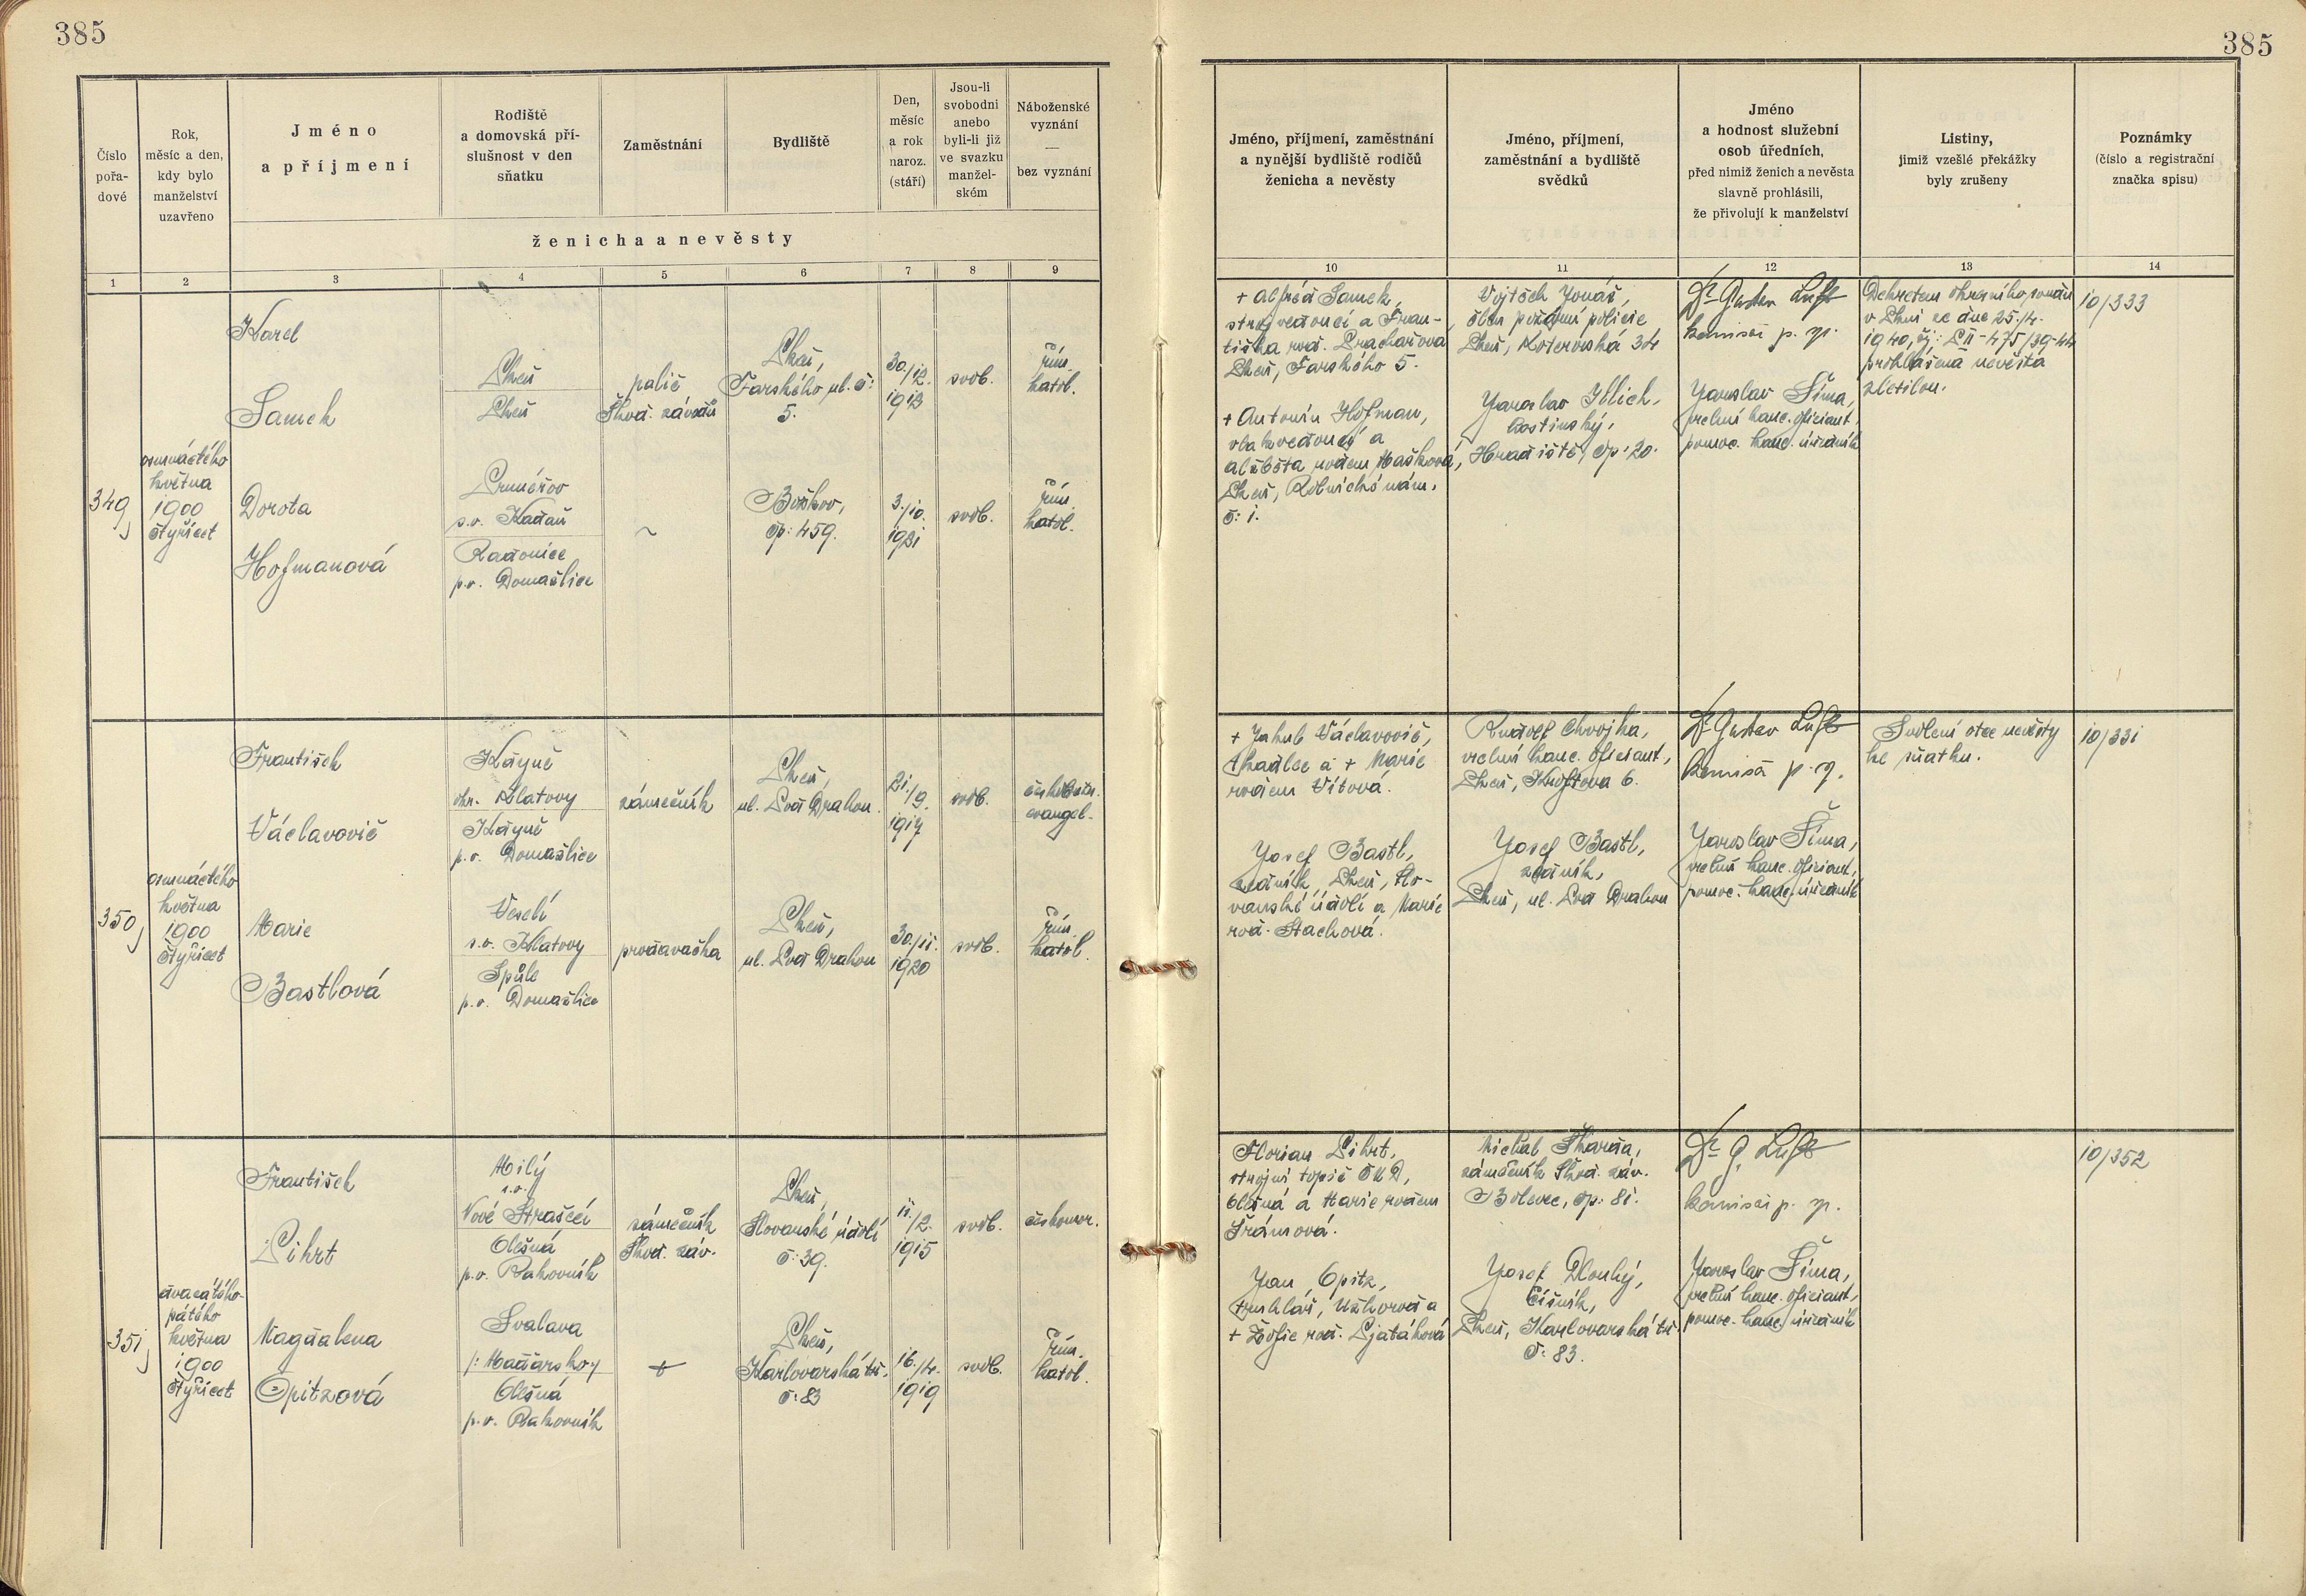 385
385
Číslo
pořa-
dové
Rok,
měsíc a den,
kdy bylo
manželství
uzavřeno
Jméno
a příjmení
Rodiště
a domovská pří-
slušnost v den
sňatku
Zaměstnání
Bydliště
Den,
měsíc
a rok
naroz.
(stáří)
Jsou-li
svobodni
anebo
byli-li již
ve svazku
manžel-
ském
Náboženské
vyznání
—
bez vyznání
ženicha a nevěsty
Jméno, příjmení, zaměstnání
a nynější bydliště rodičů
ženicha a nevěsty
Jméno, příjmení,
zaměstnání a bydliště
svědků
Jméno
a hodnost služební
osob úředních,
před nimiž ženich a nevěsta
slavně prohlásili,
že přivolují k manželství
Listiny,
jimiž vzešlé překážky
byly zrušeny
Poznámky
(číslo a registrační
značka spisu)
1 2 3 4 5 6 7 8 9 10 11 12 13 14
349
osmnáctého
května
1900
čtyřicet
Karel
Samek
Plzeň
Plzeň
palič
Škod. závodů
Plzeň,
Farského ul. č:
5.
30./12.
1913
svob.
řím.
katol.
Dorota
Hofmanová
Prunéřov
s.o. Kadaň
Radonice
p.o. Domažlice
~
Božkov,
čp: 459.
3./10.
1921
svob.
řím.
katol.
+ Alfréd Samek,
strojvedoucí a Fran-
tiška roz. Prachařova
Plzeň, Farského 5.
+ Antonín Hofman,
vlakvedoucí a
Alžběta rodem Mašková,
Plzeň, Robnické nám.
č: 1.
Vojtěch Jonáš,
člen požární policie
Plzeň, Koterovská 34
Jaroslav Illich,
hostinský,
Hradiště, čp: 20.
Dr Gustav Luft
komisař p. m.
Jaroslav Šíma,
vrchní kanc. oficiant,
pomoc. kanc. úředník
Dekretem okresního soudu
v Plzni ze dne 25./4.
1940, čj: PII-475/39-44
prohlášena nevěsta
zletilou.
10/333
350
osmnáctého
května
1900
čtyřicet
František
Václavovič
Kdyně
okr. Klatovy
Kdyně
p.o. Domažlice
zámečník
Plzeň,
ul. Pod Drahou.
21./9.
1917
svob.
českobratr.
evangel.
Marie
Bastlová
Veselí
s.o. Klatovy
Spůle
p.o. Domažlice
prodavačka
Plzeň,
ul. Pod Drahou
30./11.
1920
svob.
řím.
katol.
+ Jakub Václavovič,
tkadlec a + Marie
rodem Vítová.
Josef Bastl,
zedník, Plzeň, Slo-
vanské údolí a Marie
roz. Stachová.
Rudolf Chvojka,
vrchní kanc. oficiant,
Plzeň, Kroftova 6.
Josef Bastl,
zedník,
Plzeň, ul. Pod Drahou
Dr Gustav Luft
komisař p. m.
Jaroslav Šíma,
vrchní kanc. oficiant,
pomoc. kanc. úředník
Svolení otce nevěsty
ke sňatku.
10/331
351
dvacátého-
pátého
května
1900
čtyřicet
František
Lihrt
Milý
s.o.
Nové Strašecí
Olešná
p.o. Rakovník
zámečník
Škod. záv.
Plzeň,
Slovanské údolí
č: 39.
11./2.
1915
svob.
českomor.
Magdalena
Opitzová
Svalava
/: Maďarsko :/
Olešná
p.o. Rakovník
+
Plzeň,
Karlovarská tř.
č: 83
16./4.
1919
svob.
řím.
katol.
Florian Lihrt,
strojní topič ČKD,
Olešná a Marie rodem
Šrámová.
Jan Opitz,
truhlář, Užhorod a
+ Žofie roz. Pjatáková
Michal Škarda,
zámečník Škod. záv.
Bolevec, čp: 81.
Josef Dlouhý,
číšník,
Plzeň, Karlovarská tř.
č: 83.
Dr G. Luft
komisař p. m.
Jaroslav Šíma,
vrchní kanc. oficiant,
pomoc. kanc. úředník
10/352